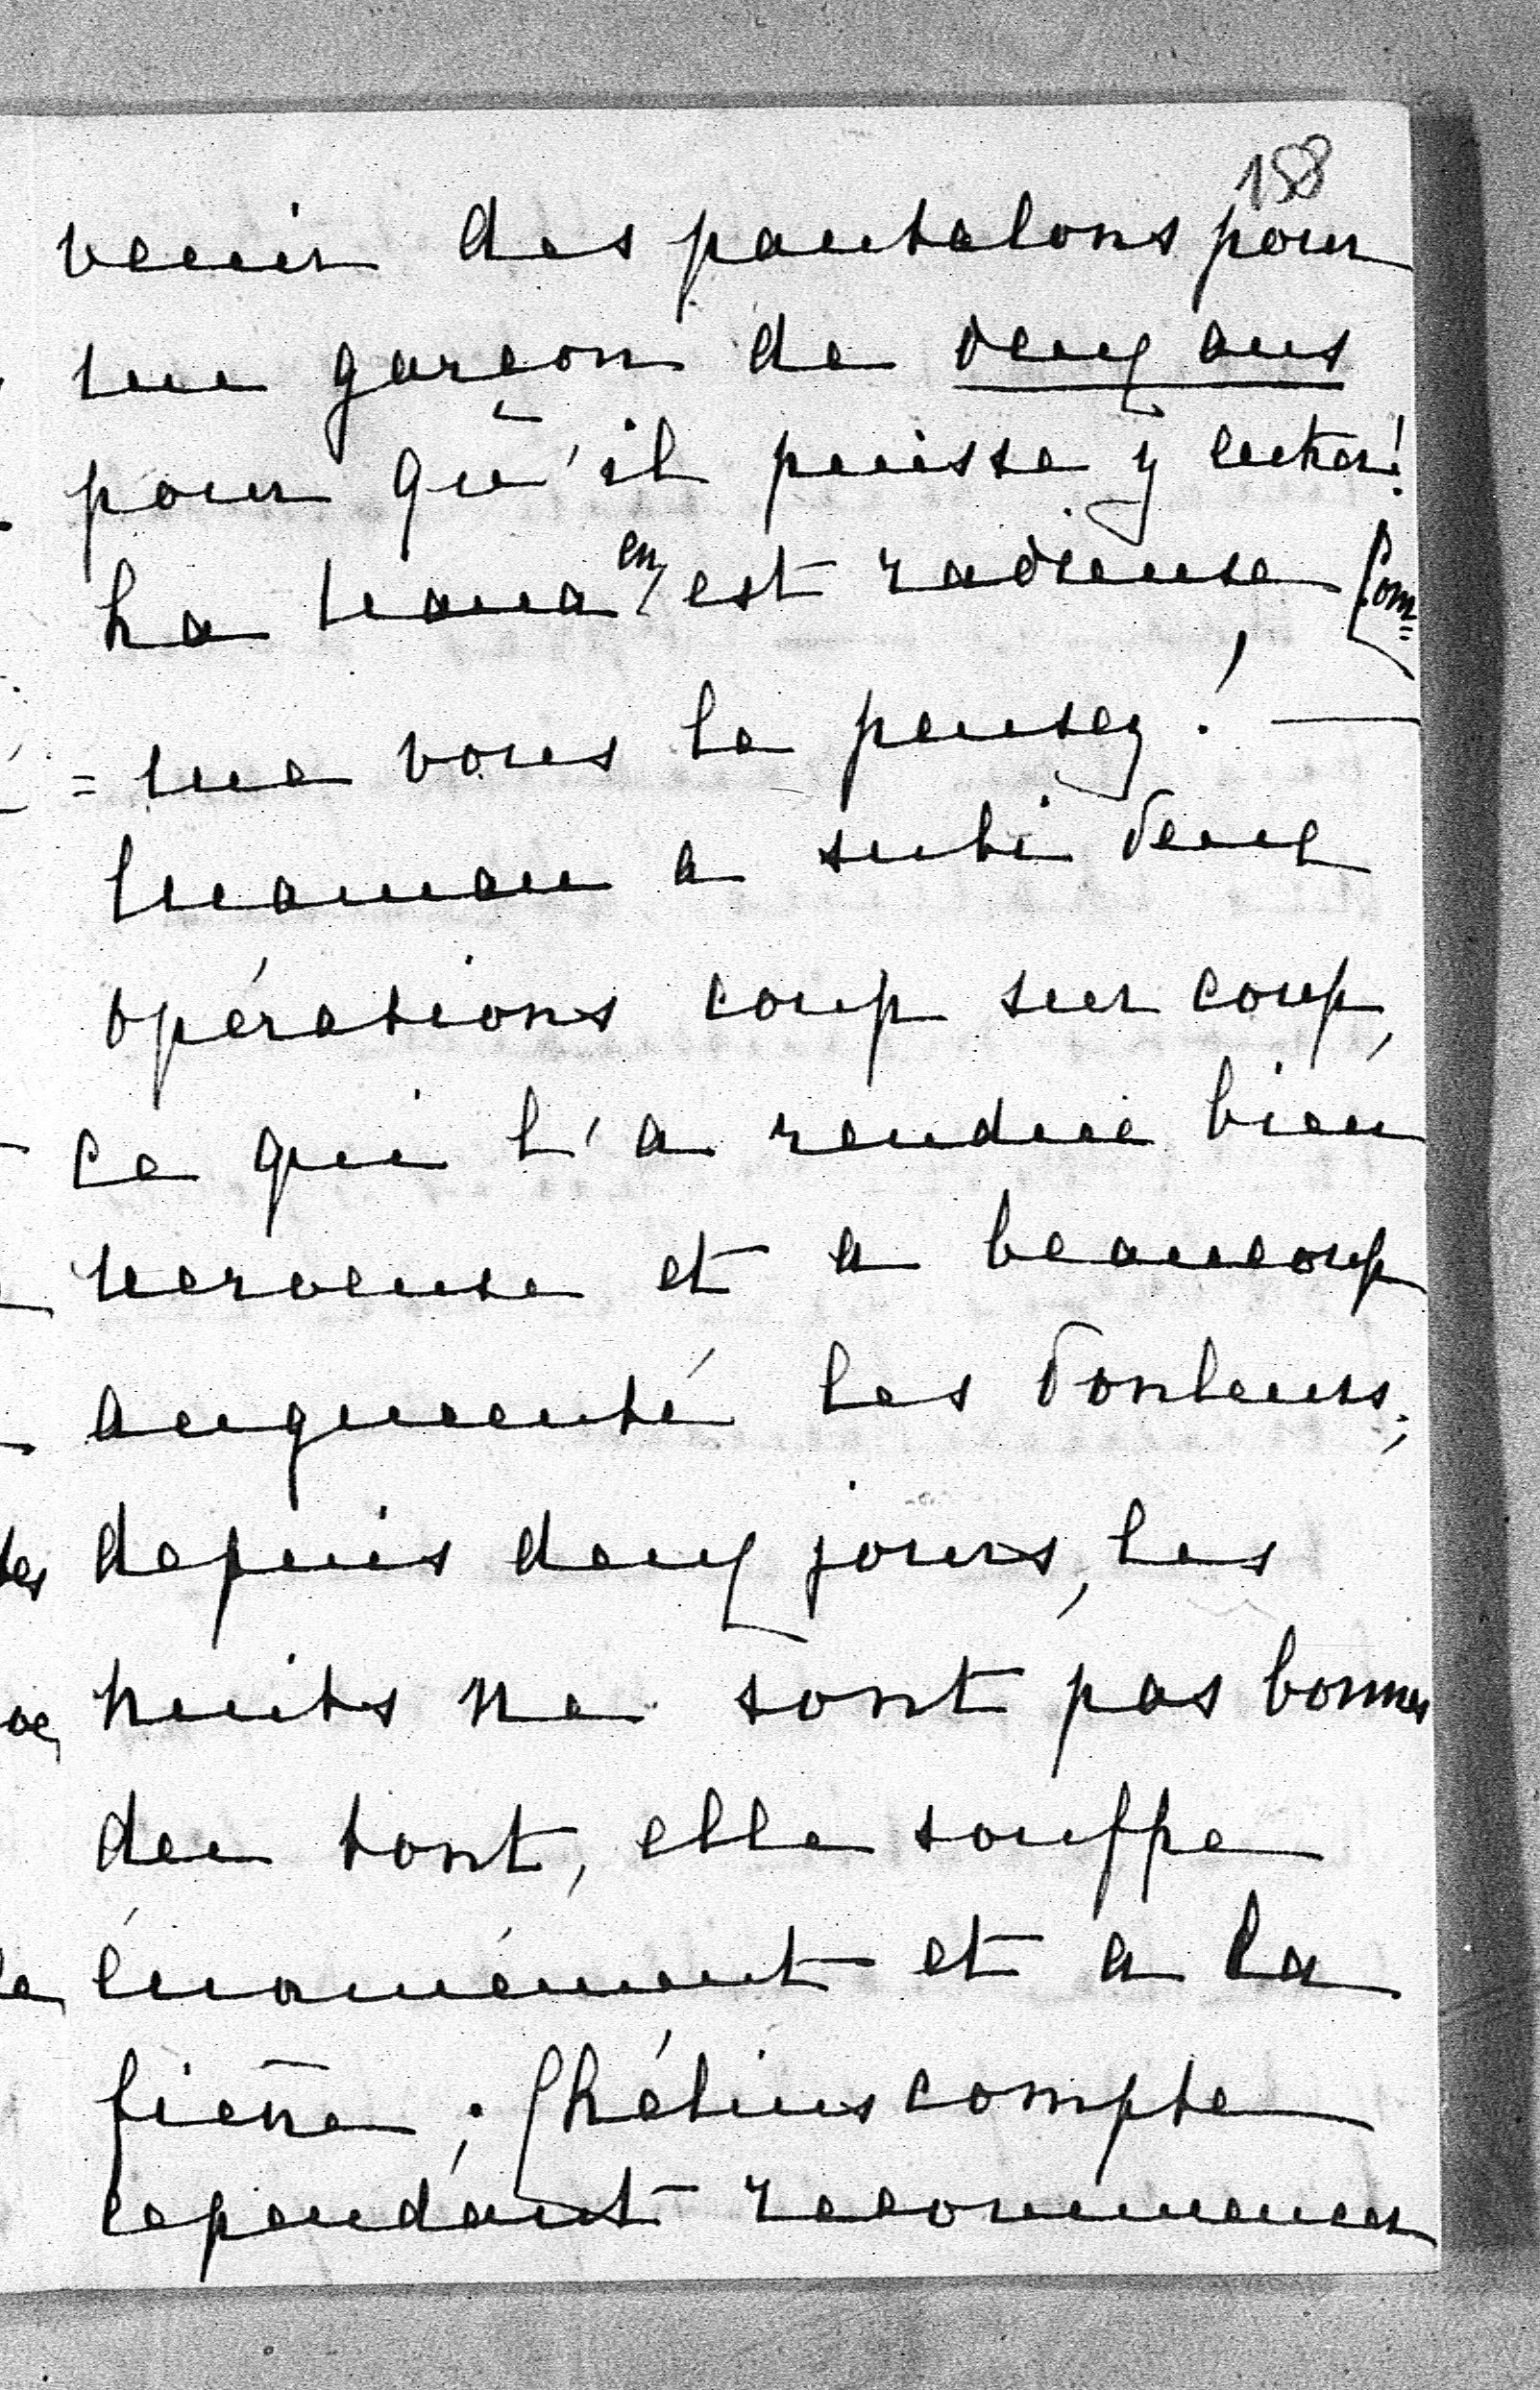 158
venir des pantalons pour
un garçon de deux ans
pour qu'il puisse y entrer!
La nana en est radieuse, Com=
=me vous le pensez! —
Maman a subi deux
opérations coup sur coup,
ce qui l'a rendue bien
nerveuse et a beaucoup
augmenté les douleurs;
depuis deux jours, les
nuits ne sont pas bonnes
du tout, elle souffre
énormément et a la
fièvre; Ghélius compte
cependant recommencer